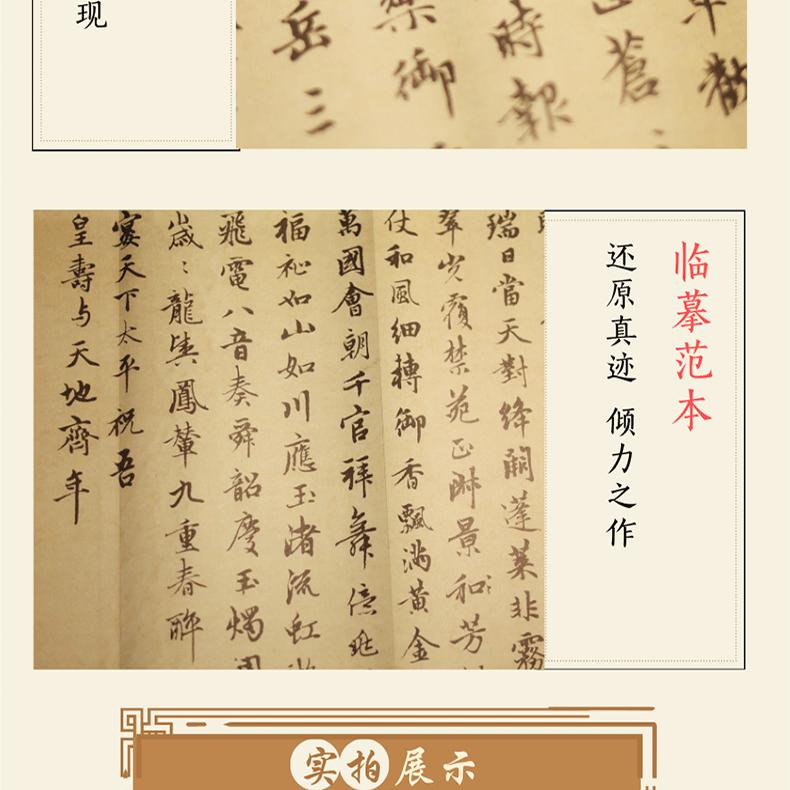 现
岳三
御
時報
蒼
临摹范本
还原真迹 倾力之作
瑞日當天對絳闕蓬萊非霧
翠光覆禁苑正淑景和芳
仗和風細轉御香飄滿黃金
萬國會朝千官拜舞億兆
福祉如山如川應玉渚流虹
飛電八音奏舜韶慶玉燭調
歲歲龍輿鳳輦九重春醉
宴天下太平祝吾
皇壽与天地齊年
实拍展示